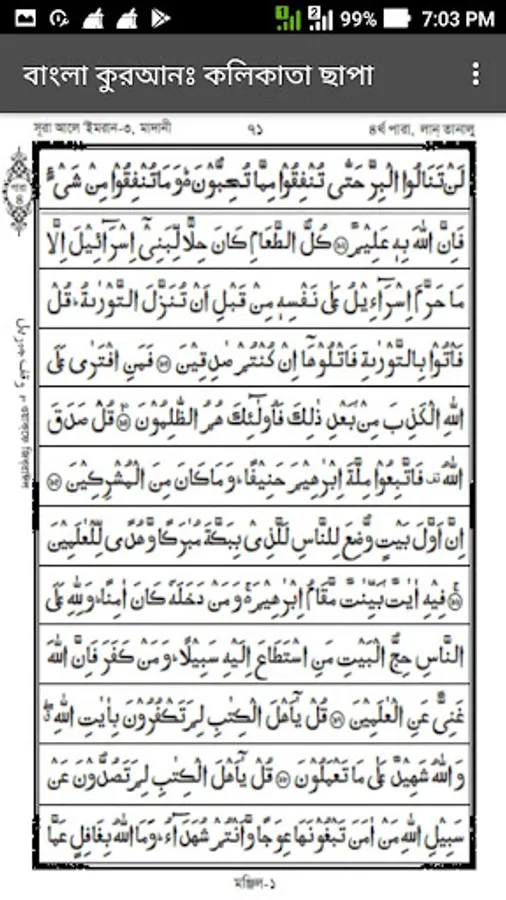 99% 7:03 PM
বাংলা কুরআনঃ কলিকাতা ছাপা
সূরা আলে 'ইমরান-৩, মাদানী ৭১ ৪র্থ পারা, লান্ তানালু
পারা
৪
لَنْ تَنَالُوا الْبِرَّ حَتّٰى تُنْفِقُوْا مِمَّا تُحِبُّوْنَ ؕ وَمَا تُنْفِقُوْا مِنْ شَیْءٍ
فَاِنَّ اللّٰهَ بِهٖ عَلِيْمٌ ۝ كُلُّ الطَّعَامِ كَانَ حِلًّا لِّبَنِیْۤ اِسْرَآئِيْلَ اِلَّا
مَا حَرَّمَ اِسْرَآءِيْلُ عَلٰى نَفْسِهٖ مِنْ قَبْلِ اَنْ تُنَزَّلَ التَّوْرٰىةُ ؕ قُلْ
فَاْتُوْا بِالتَّوْرٰىةِ فَاتْلُوْهَاۤ اِنْ كُنْتُمْ صٰدِقِيْنَ ۝ فَمَنِ افْتَرٰى عَلَى
اللّٰهِ الْكَذِبَ مِنْۢ بَعْدِ ذٰلِكَ فَاُولٰٓئِكَ هُمُ الظّٰلِمُوْنَ ۝ قُلْ صَدَقَ
اللّٰهُ فَاتَّبِعُوْا مِلَّةَ اِبْرٰهِيْمَ حَنِيْفًا ؕ وَمَا كَانَ مِنَ الْمُشْرِكِيْنَ ۝
اِنَّ اَوَّلَ بَيْتٍ وُّضِعَ لِلنَّاسِ لَلَّذِیْ بِبَكَّةَ مُبٰرَكًا وَّهُدًى لِّلْعٰلَمِيْنَ
۝ فِيْهِ اٰيٰتٌۢ بَيِّنٰتٌ مَّقَامُ اِبْرٰهِيْمَ ۚ وَمَنْ دَخَلَهٗ كَانَ اٰمِنًا ؕ وَلِلّٰهِ عَلَى
النَّاسِ حِجُّ الْبَيْتِ مَنِ اسْتَطَاعَ اِلَيْهِ سَبِيْلًا ؕ وَمَنْ كَفَرَ فَاِنَّ اللّٰهَ
غَنِیٌّ عَنِ الْعٰلَمِيْنَ ۝ قُلْ يٰۤاَهْلَ الْكِتٰبِ لِمَ تَكْفُرُوْنَ بِاٰيٰتِ اللّٰهِ ۖ
وَاللّٰهُ شَهِيْدٌ عَلٰى مَا تَعْمَلُوْنَ ۝ قُلْ يٰۤاَهْلَ الْكِتٰبِ لِمَ تَصُدُّوْنَ عَنْ
سَبِيْلِ اللّٰهِ مَنْ اٰمَنَ تَبْغُوْنَهَا عِوَجًا وَّاَنْتُمْ شُهَدَآءُ ؕ وَمَا اللّٰهُ بِغَافِلٍ عَمَّا
মঞ্জিল-১